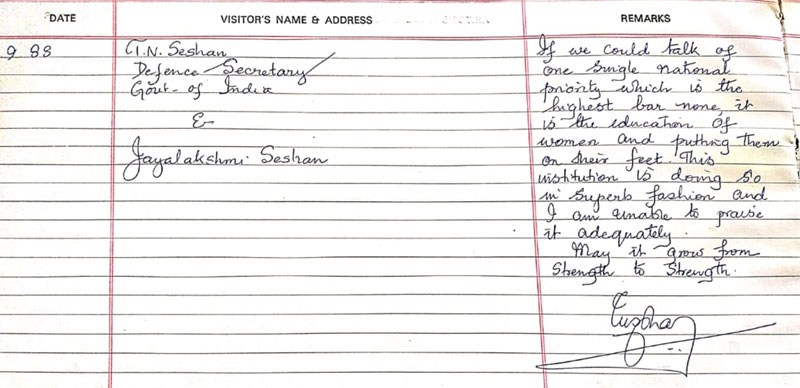 DATE VISITOR'S NAME & ADDRESS REMARKS
9 88
T.N. Seshan
Defence Secretary
Govt- of India
&
Jayalakshmi Seshan
If we could talk of
one single national
priority which is the
highest bar none, it
is the education of
women and putting them
on their feet. This
institution is doing so
in superb fashion and
I am unable to praise
it adequately.
May it grow from
Strength to Strength.